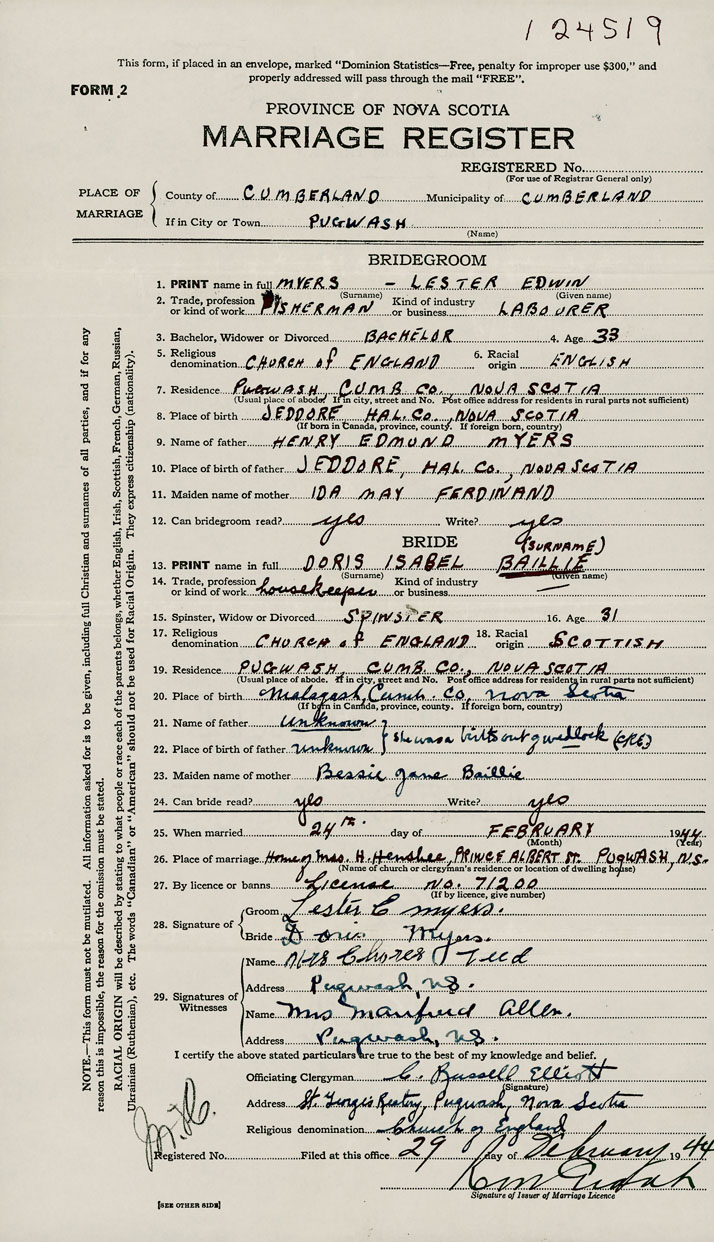 124519
This form, if placed in an envelope, marked "Dominion Statistics—Free, penalty for improper use $300," and
properly addressed will pass through the mail "FREE".
FORM 2
PROVINCE OF NOVA SCOTIA
MARRIAGE REGISTER
REGISTERED No.
(For use of Registrar General only)
PLACE OF MARRIAGE
County of CUMBERLAND Municipality of CUMBERLAND
If in City or Town PUGWASH
(Name)
BRIDEGROOM
1. PRINT name in full MYERS - LESTER EDWIN
(Surname) (Given name)
2. Trade, profession or kind of work FISHERMAN Kind of industry or business LABOURER
3. Bachelor, Widower or Divorced BACHELOR 4. Age 33
5. Religious denomination CHURCH of ENGLAND 6. Racial origin ENGLISH
7. Residence PUGWASH, CUMB CO., NOVA SCOTIA
(Usual place of abode. If in city, street and No. Post office address for residents in rural parts not sufficient)
8. Place of birth JEDDORE HAL. CO. NOVA SCOTIA
(If born in Canada, province, county. If foreign born, country)
9. Name of father HENRY EDMUND MYERS
10. Place of birth of father JEDDORE, HAL. CO., NOVA SCOTIA
11. Maiden name of mother IDA MAY FERDINAND
12. Can bridegroom read? yes Write? yes
BRIDE (SURNAME)
13. PRINT name in full DORIS ISABEL BAILLIE
(Surname) (Given name)
14. Trade, profession or kind of work housekeeper Kind of industry or business —
15. Spinster, Widow or Divorced SPINSTER 16. Age 31
17. Religious denomination CHURCH of ENGLAND 18. Racial origin SCOTTISH
19. Residence PUGWASH, CUMB CO., NOVA SCOTIA
(Usual place of abode. If in city, street and No. Post office address for residents in rural parts not sufficient)
20. Place of birth Malagash, Cumb. Co, Nova Scotia
(If born in Canada, province, county. If foreign born, country)
21. Name of father Unknown
22. Place of birth of father unknown } she was a birth out of wedlock (CRE)
23. Maiden name of mother Bessie Jane Baillie
24. Can bride read? yes Write? yes
25. When married 24th. day of FEBRUARY 1944
(Month) (Year)
26. Place of marriage Home of Mrs. H. Henshee, PRINCE ALBERT ST. PUGWASH, N.S.
(Name of church or clergyman's residence or location of dwelling house)
27. By licence or banns License no. 71200
(If by licence, give number)
28. Signature of
Groom Lester E Myers.
Bride Doris Myers.
29. Signatures of Witnesses
Name Mrs Teed
Address Pugwash, N.S.
Name Mrs Manifred Allen.
Address Pugwash, N.S.
I certify the above stated particulars are true to the best of my knowledge and belief.
Officiating Clergyman C. Russell Elliott
(Signature)
Address St. Georges Rectory, Pugwash, Nova Scotia
Religious denomination Church of England
Registered No. Filed at this office 29 day of February 1944
Signature of Issuer of Marriage Licence
[SEE OTHER SIDE]
NOTE.—This form must not be mutilated. All information asked for is to be given, including full Christian and surnames of all parties, and if for any
reason this is impossible, the reason for the omission must be stated.
RACIAL ORIGIN will be described by stating to what people or race each of the parents belongs, whether English, Irish, Scottish, French, German, Russian,
Ukrainian (Ruthenian), etc. The words "Canadian" or "American" should not be used for Racial Origin. They express citizenship (nationality).